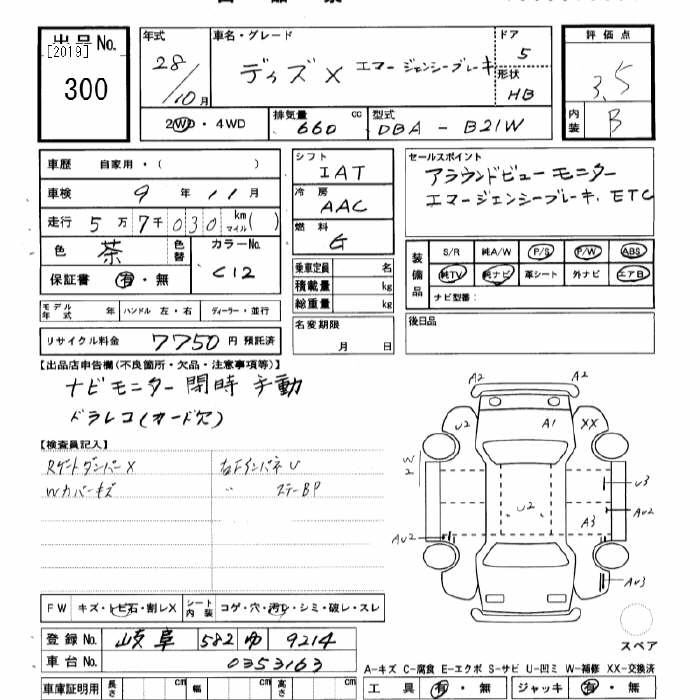 出品No.
[2019]
300
年式
28/10月
車名・グレード
デイズ X エマージェンシーブレーキ
ドア
5
形状
HB
評価点
3.5
内装
B
2WD・4WD
排気量
660 cc
型式
DBA - B21W
車歴 自家用・( )
車検 9年 11月
走行 5万7千030 km マイル( )
色 茶
色替
カラーNo.
C12
保証書 有・無
シフト
IAT
冷房
AAC
燃料
G
乗車定員 名
積載量 kg
総重量 kg
セールスポイント
アラウンドビューモニター
エマージェンシーブレーキ、ETC
装備品
S/R 純A/W P/S P/W ABS
純TV 純ナビ 革シート 外ナビ エアB
ナビ型番:
モデル年式 年
ハンドル 左・右
ディーラー・並行
名変期限
月 日
後日品
リサイクル料金 7750 円 預託済
【出品店申告欄(不良箇所・欠品・注意事項等)】
ナビモニター 閉時 手動
ドラレコ(カード欠)
【検査員記入】
Rゲートダンパー X
Wカバーキズ
右Fインパネ U
〃 ステーBP
A2
A2
U2
A1
XX
W2
U3
U2
A3
AU2
AU2
AU3
FW キズ・トビ石・割レX
シート内装 コゲ・穴・汚レ・シミ・破レ・スレ
スペア
登録No. 岐阜 582 ゆ 9214
車台No. 0353163
A-キズ C-腐食 E-エクボ S-サビ U-凹ミ W-補修 XX-交換済
車庫証明用 長さ cm 幅 cm 高さ cm
工具 有・無 ジャッキ 有・無